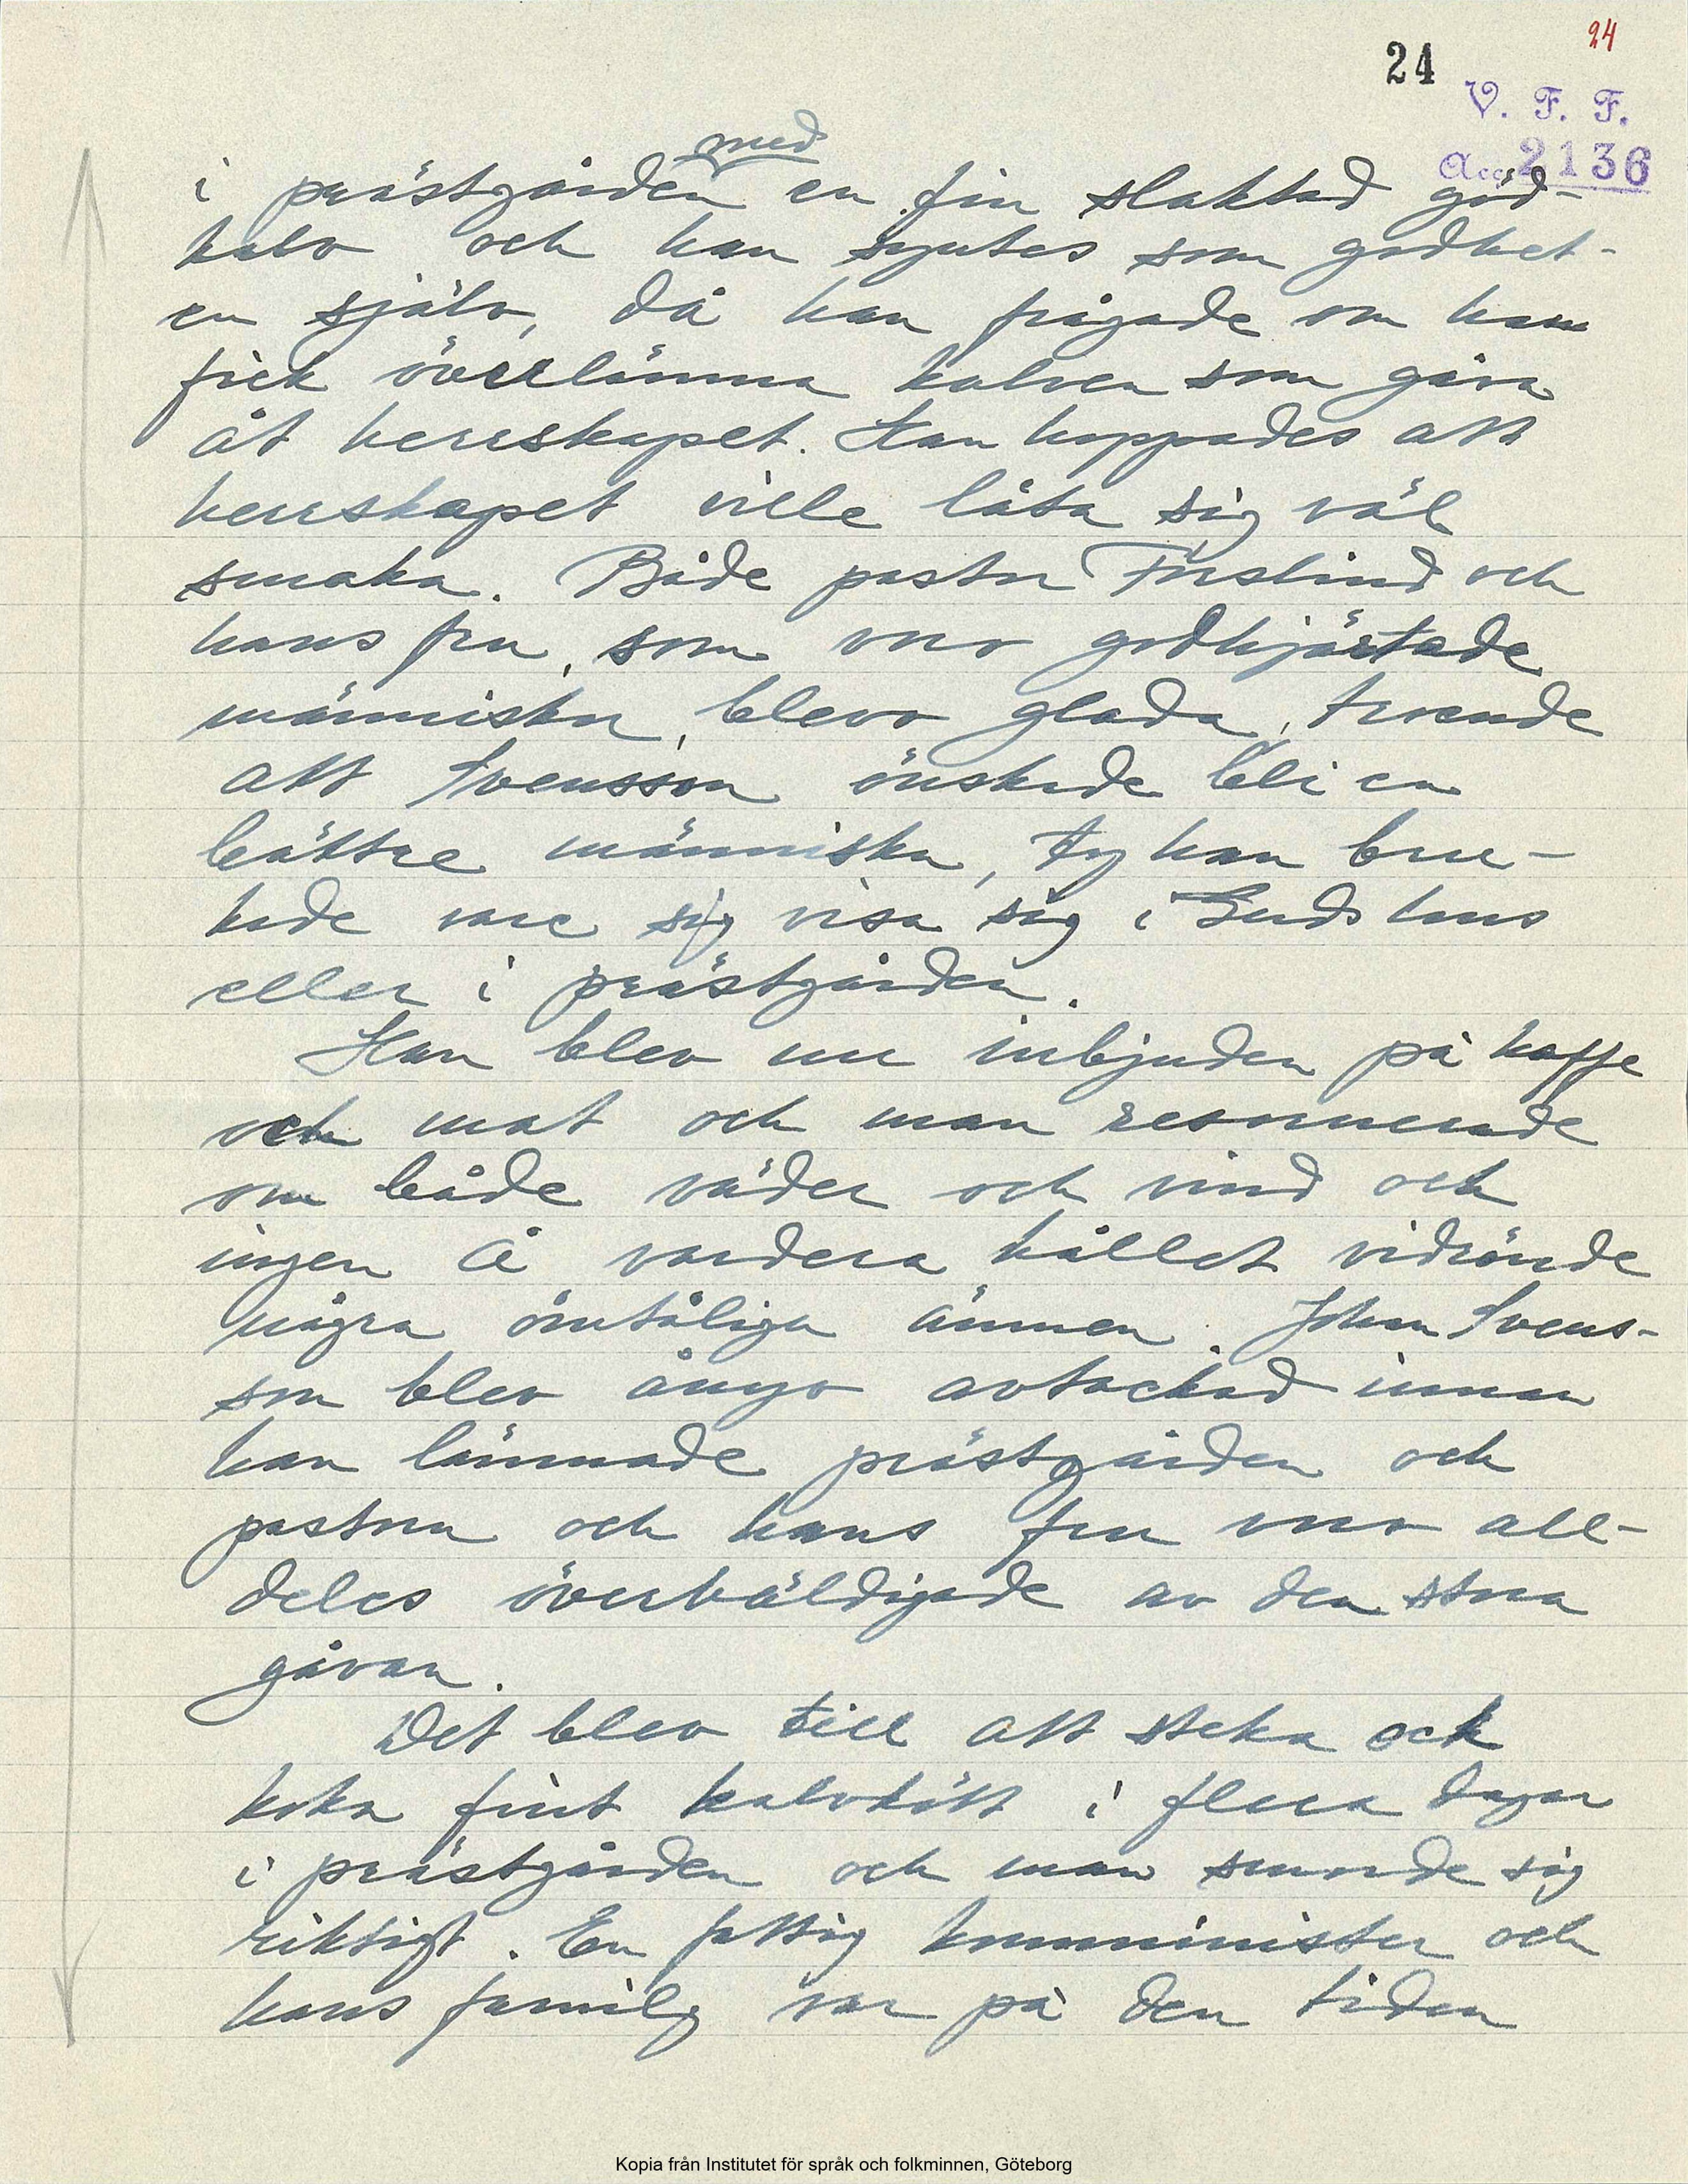 24
24
V. F. F.
Acc. 2136
med
i prästgården en fin slaktad göd-
kalv och han syntes som godhet-
en själv, då han frågade om han
fick överlämna kalven som gåva
åt herrskapet. Han hoppades att
herrskapet ville låta sig väl
smaka. Både pastor Forslind och
hans fru, som voro godhjärtade
människor, blevo glada, troende
att Svensson önskade bli en
bättre människa, ty han bru-
kade vare sig visa sig i Guds hus
eller i prästgården.
Han blev nu inbjuden på kaffe
och mat och man resonnerade
om både väder och vind och
ingen å vardera hållet vidrörde
några ömtåliga ämnen. Johan Svens-
son blev ånyo avtackad innan
han lämnade prästgården och
pastorn och hans fru voro all-
deles överväldigade av den stora
gåvan.
Det blev till att steka och
koka fint kalvkött i flera dagar
i prästgården och man smorde sig
riktigt. En fattig komminister och
hans familj var på den tiden
Kopia från Institutet för språk och folkminnen, Göteborg